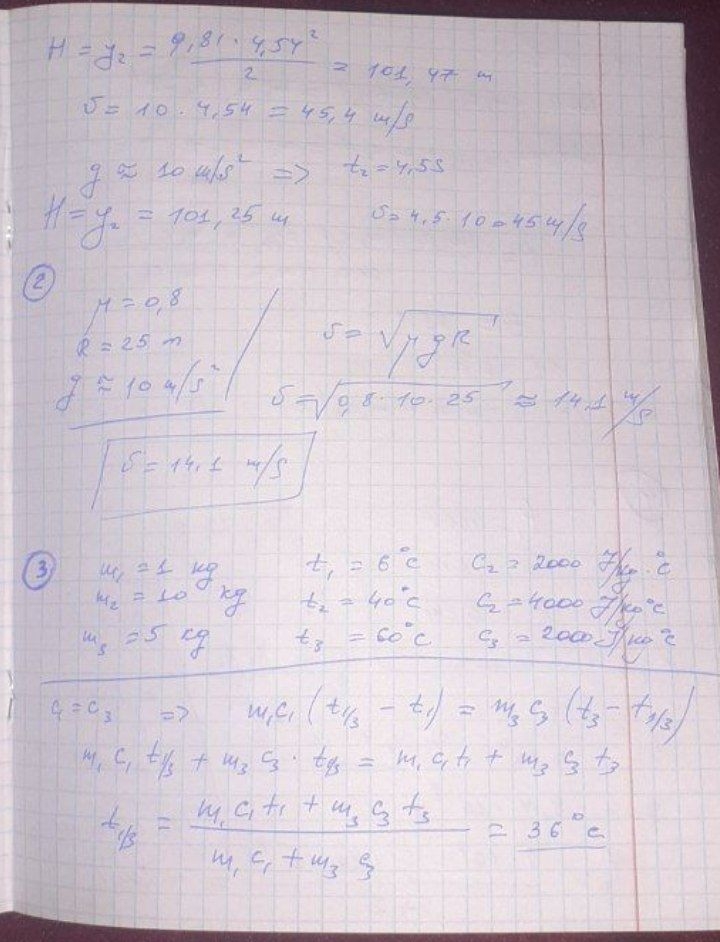 H = y₂ = 9,81 · 4,54² / 2 = 101,47 m
υ = 10 · 4,54 = 45,4 m/s
g ≈ 10 m/s² => t₂ = 4,5s
H = y₂ = 101,25 m υ = 4,5 · 10 = 45 m/s
②
μ = 0,8
R = 25 m υ = √μgR
g ≈ 10 m/s² υ = √0,8 · 10 · 25 ≈ 14,1 m/s
υ = 14,1 m/s
③ m₁ = 1 kg t₁ = 6°c c₂ = 2000 J/kg·°c
m₂ = 10 kg t₂ = 40°c c₂ = 4000 J/kg°c
m₃ = 5 kg t₃ = 60°c c₃ = 2000 J/kg°c
c₁ = c₃ => m₁c₁(t₁/₃ - t₁) = m₃c₃(t₃ - t₁/₃)
m₁c₁t₁/₃ + m₃c₃ · t₁/₃ = m₁c₁t₁ + m₃c₃t₃
t₁/₃ = m₁c₁t₁ + m₃c₃t₃ / m₁c₁ + m₃c₃ = 36°c